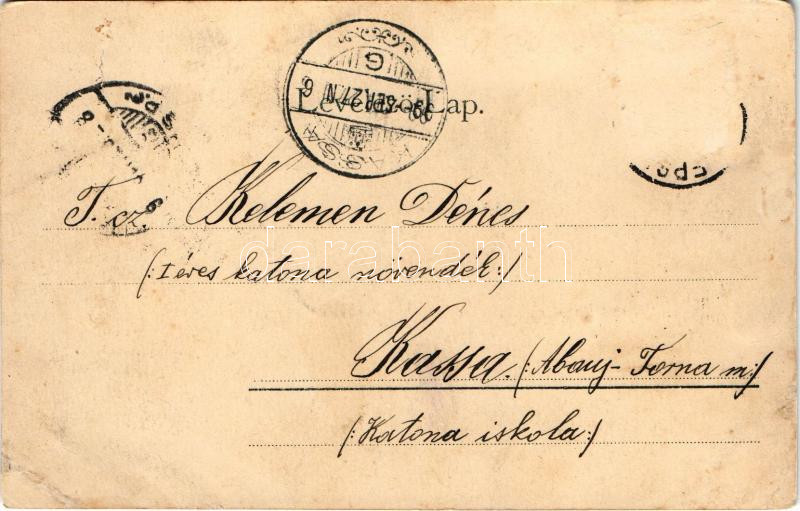 Levelező-Lap.
KASSA
99 SEP. 27 N 6
G
T. cz. Kelemen Dénes
(: I éves katona növendék :)
Kassa. (: Abauj-Torna m :)
(: Katona iskola :)
darabanth